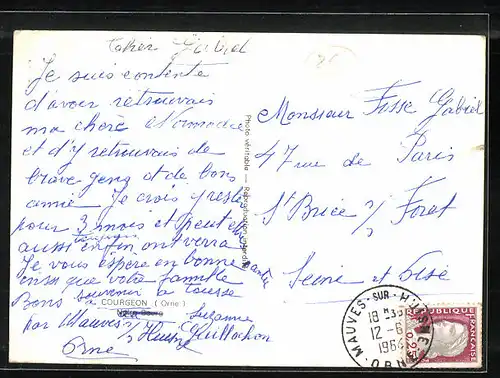 Cher Gabriel
Je suis contente
d'avoir retrouvais
ma chère Normandie
et d'y retrouvais de
brave gens et de bons
amie Je crois y rester
pour 3 mois et peut etre
aussi enfin ont verra
Je vous espère en bonne santé
ainsi que votre famille
Bons souvenir a tousse
COURGEON (Orne)
Suzanne
par Mauves s/ Huisne
Orne
Photo véritable — Reproduction interdite
Monsieur Fisse Gabriel
47 rue de Paris
St Brice s/ Foret
Seine et Oise
MAUVES-SUR-HUISNE
ORNE
18 H
12-6
1964
REPUBLIQUE FRANÇAISE
0,25